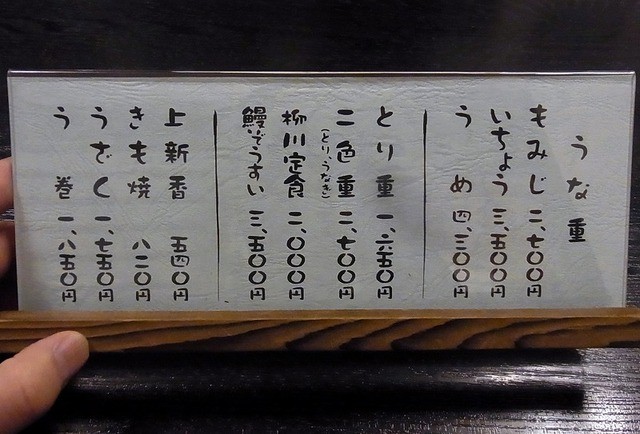 うな重
もみじ 二、七〇〇円
いちょう 三、五〇〇円
うめ 四、三〇〇円
とり重 一、六五〇円
二色重 二、七〇〇円
(とり、うなぎ)
柳川定食 二、〇〇〇円
鰻ぞうすい 三、五〇〇円
上新香 五四〇円
きも焼 八二〇円
うざく 一、七五〇円
う巻 一、八五〇円